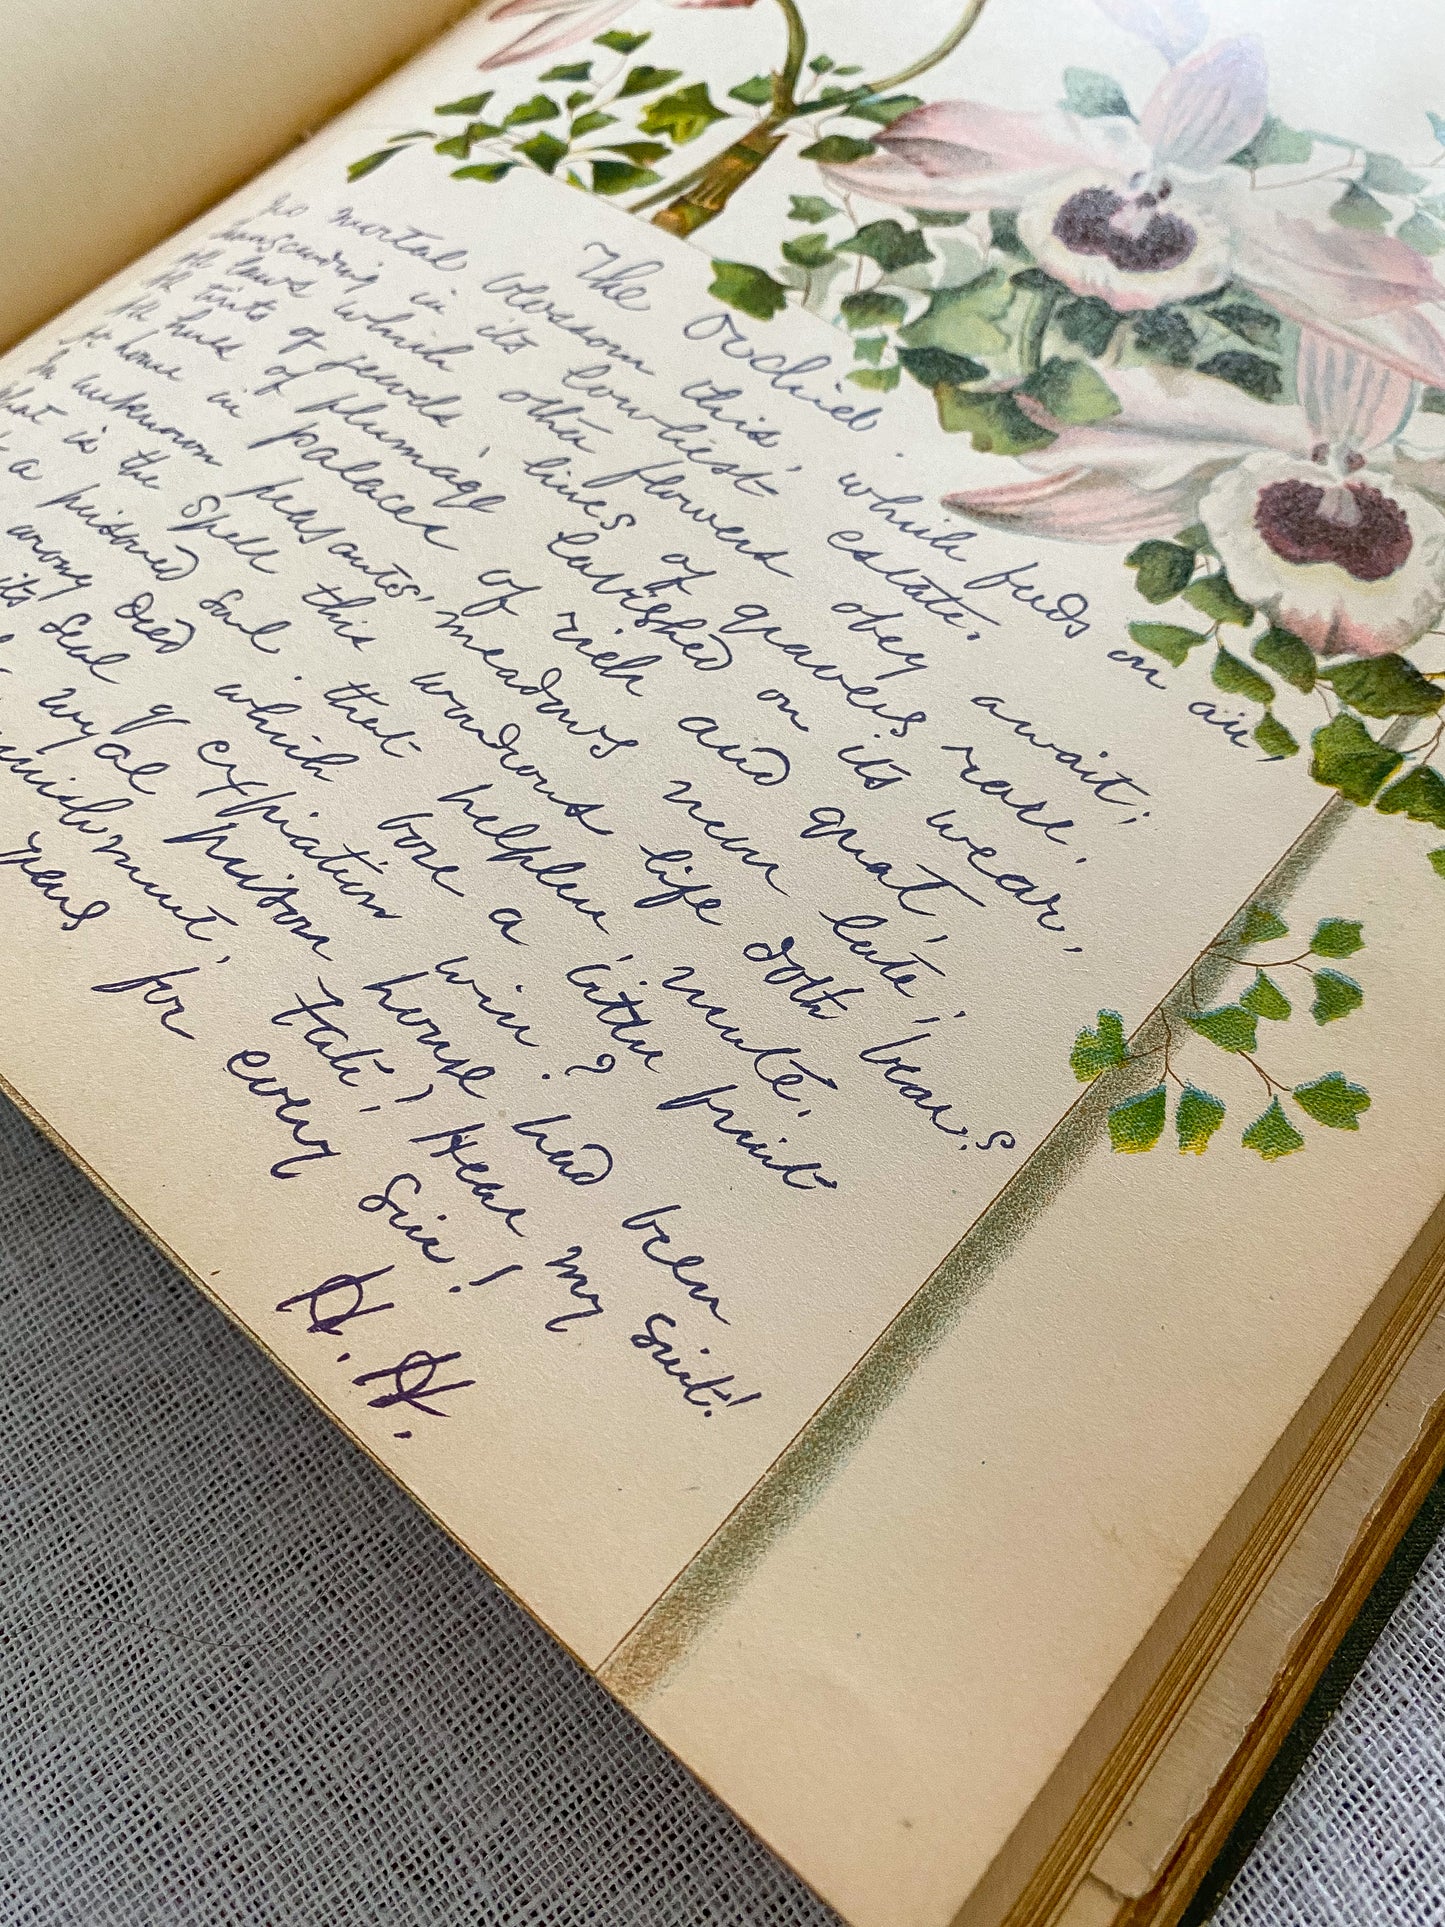 The Orchid.
No mortal blossom this, which feeds on air,
transcending in its lowliest estate.
All laws which other flowers obey await;
All tints of jewels, lines of gravers rare,
All hues of plumage lavished on its wear,
At home in palaces of rich and great,
In unknown peasants' meadows neun late;
What is the spell this wondrous life doth bear?
a prisoned soul, that helpless, mute,
wrong Died which bore a little fruit
its seal of expiation win?
wyal prison house had been
punishment, Fate! Hear my suit!
years for every sin!
H. H.